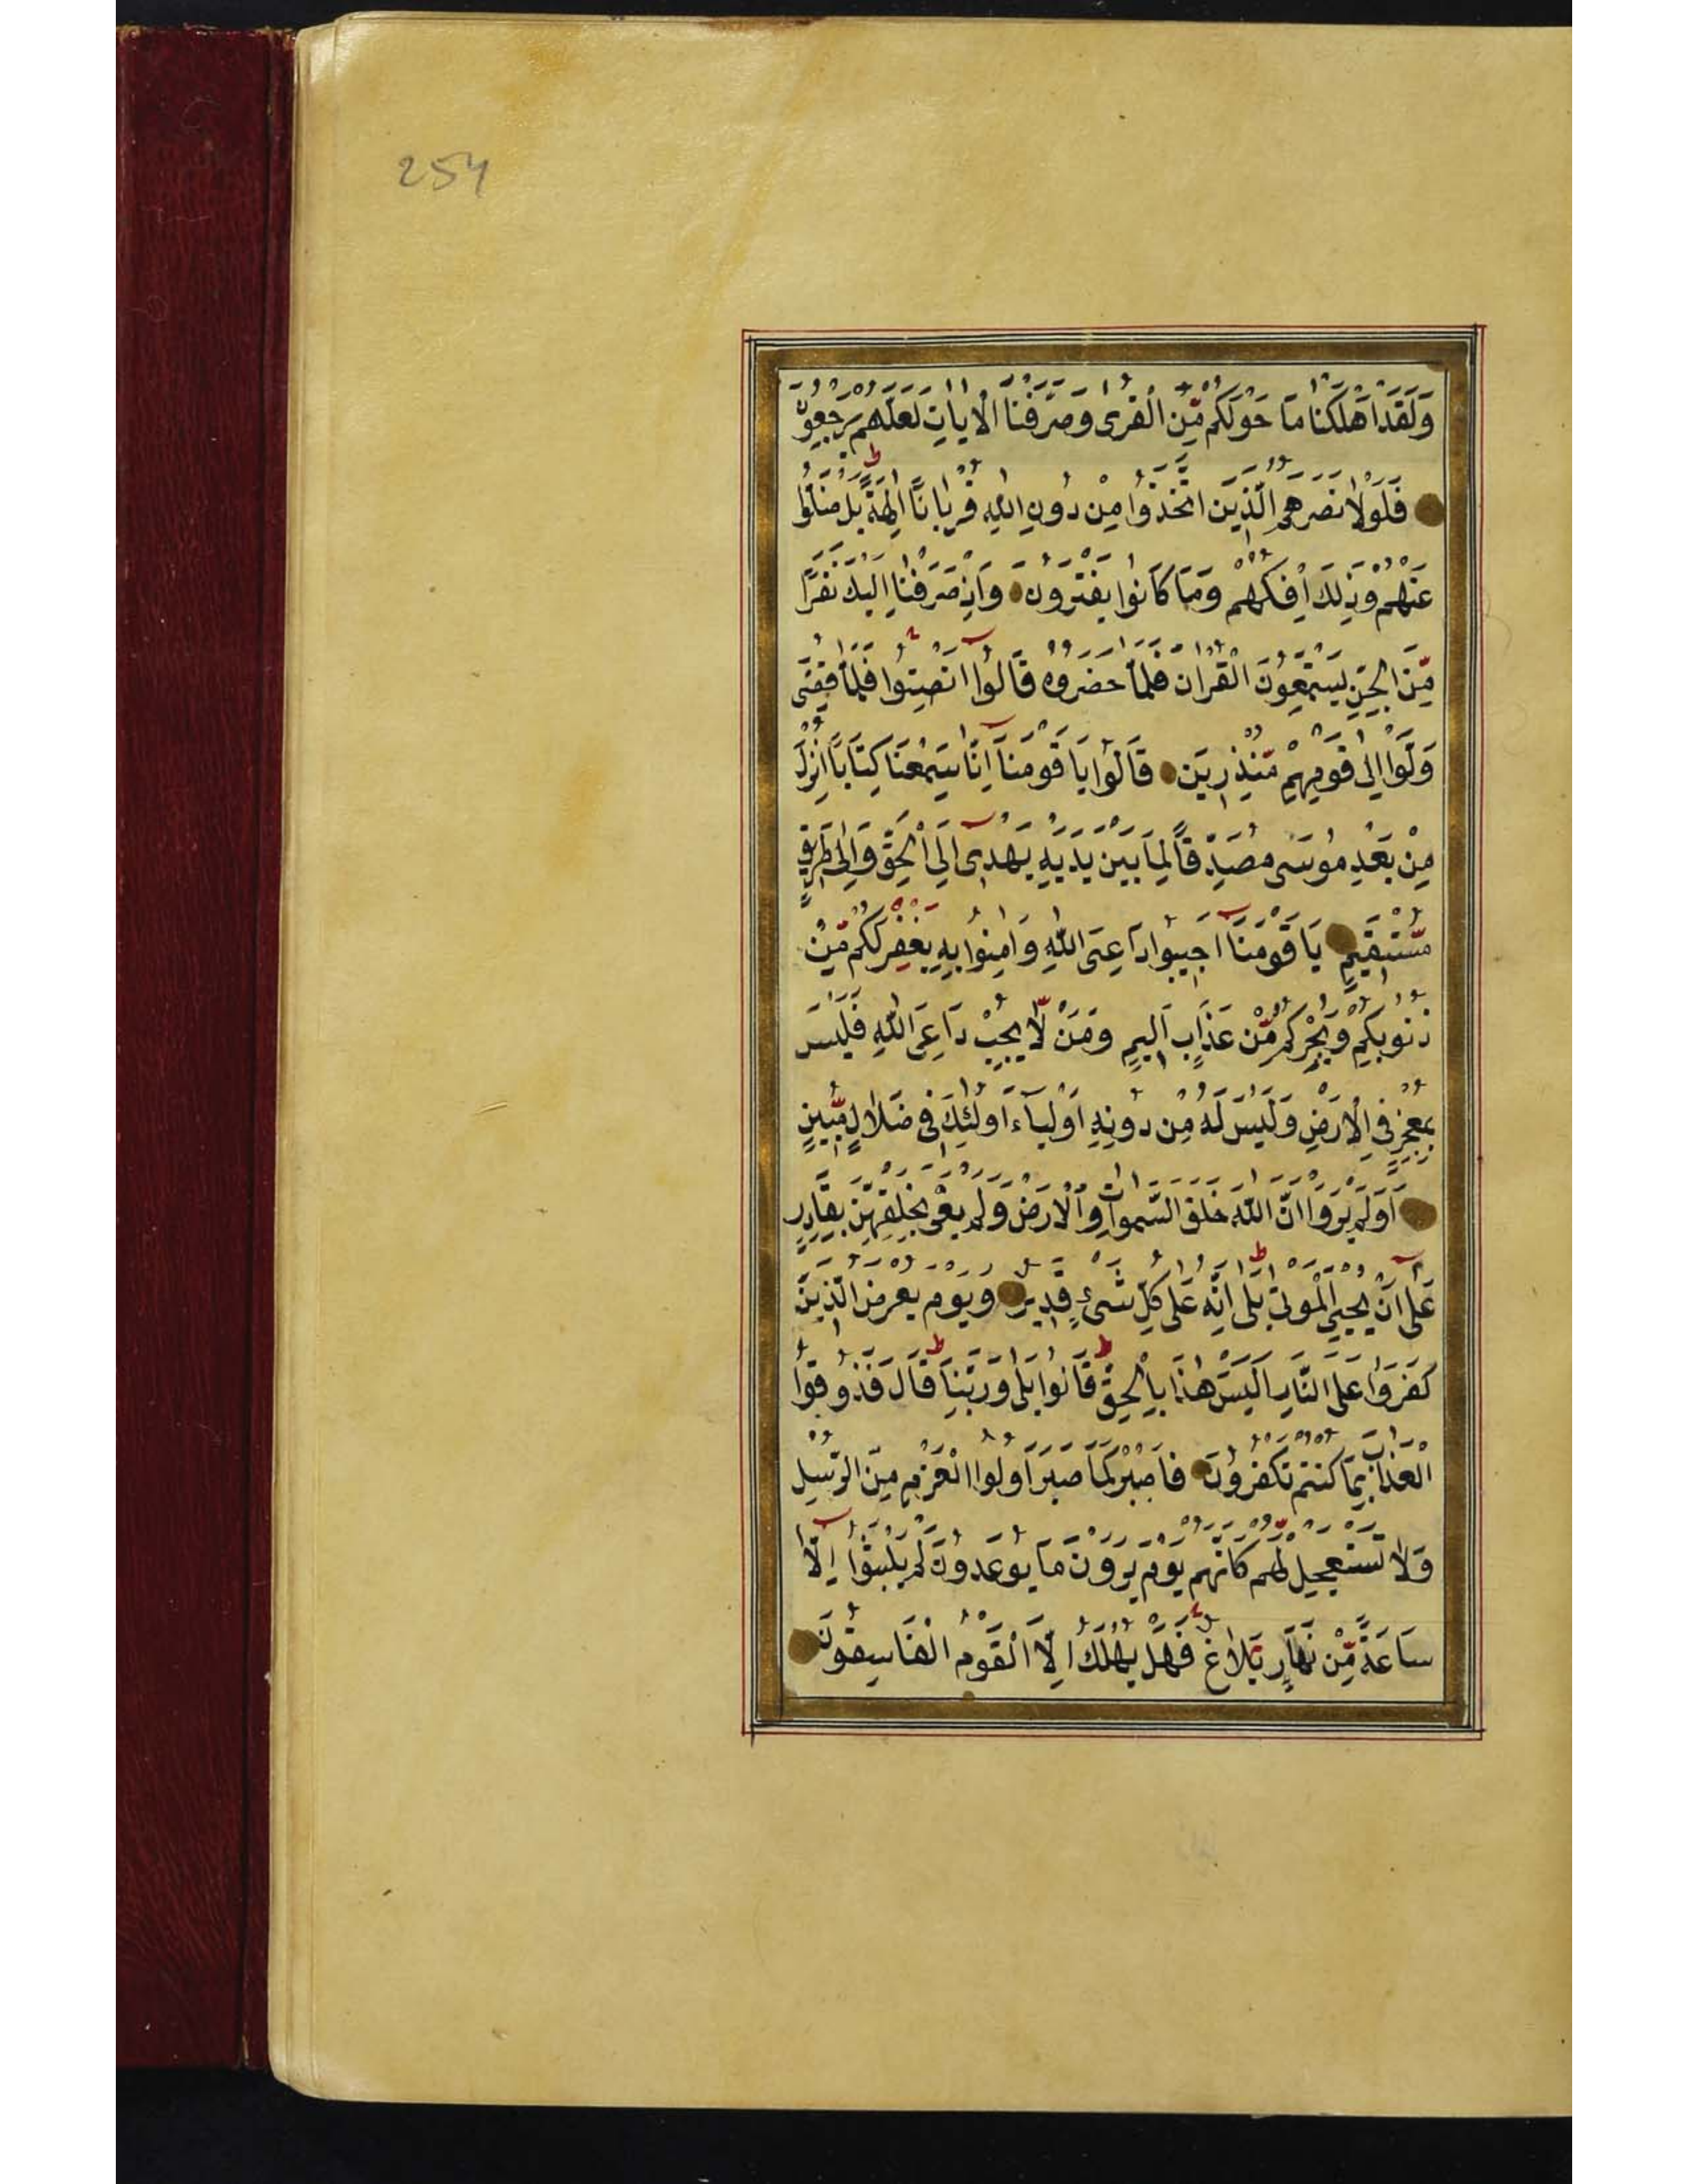 254
وَلَقَدْ اَهْلَكْنَا مَا حَوْلَكُمْ مِّنَ الْقُرٰى وَصَرَّفْنَا الْاٰيَاتِ لَعَلَّهُمْ يَرْجِعُوْنَ
فَلَوْلَا نَصَرَهُمُ الَّذِيْنَ اتَّخَذُوْا مِنْ دُوْنِ اللّٰهِ قُرْبَانًا اٰلِهَةً ط بَلْ ضَلُّوْا
عَنْهُمْ وَذٰلِكَ اِفْكُهُمْ وَمَا كَانُوْا يَفْتَرُوْنَ وَاِذْ صَرَفْنَا اِلَيْكَ نَفَرًا
مِّنَ الْجِنِّ يَسْتَمِعُوْنَ الْقُرْاٰنَ فَلَمَّا حَضَرُوْهُ قَالُوْا اَنْصِتُوْا فَلَمَّا قُضِىَ
وَلَّوْا اِلٰى قَوْمِهِمْ مُّنْذِرِيْنَ قَالُوْا يَا قَوْمَنَا اِنَّا سَمِعْنَا كِتَابًا اُنْزِلَ
مِنْ بَعْدِ مُوْسٰى مُصَدِّقًا لِمَا بَيْنَ يَدَيْهِ يَهْدِى اِلَى الْحَقِّ وَاِلٰى طَرِيْقٍ
مُّسْتَقِيْمٍ يَا قَوْمَنَا اَجِيْبُوْا دَاعِىَ اللّٰهِ وَاٰمِنُوْا بِهِ يَغْفِرْ لَكُمْ مِّنْ
ذُنُوْبِكُمْ وَيُجِرْكُمْ مِّنْ عَذَابٍ اَلِيْمٍ وَمَنْ لَّا يُجِبْ دَاعِىَ اللّٰهِ فَلَيْسَ
بِمُعْجِزٍ فِى الْاَرْضِ وَلَيْسَ لَهُ مِنْ دُوْنِهِ اَوْلِيَاۤءَ اُولٰئِكَ فِى ضَلَالٍ مُّبِيْنٍ
اَوَلَمْ يَرَوْا اَنَّ اللّٰهَ خَلَقَ السَّمٰوَاتِ وَالْاَرْضَ وَلَمْ يَعْىَ بِخَلْقِهِنَّ بِقَادِرٍ
عَلٰى اَنْ يُحْيِىَ الْمَوْتٰى ط بَلٰى اِنَّهُ عَلٰى كُلِّ شَىْءٍ قَدِيْرٌ وَيَوْمَ يُعْرَضُ الَّذِيْنَ
كَفَرُوْا عَلَى النَّارِ اَلَيْسَ هٰذَا بِالْحَقِّ ط قَالُوْا بَلٰى وَرَبِّنَا ط قَالَ فَذُوْقُوْا
الْعَذَابَ بِمَا كُنْتُمْ تَكْفُرُوْنَ فَاصْبِرْ كَمَا صَبَرَ اُولُوا الْعَزْمِ مِنَ الرُّسُلِ
وَلَا تَسْتَعْجِلْ لَّهُمْ كَاَنَّهُمْ يَوْمَ يَرَوْنَ مَا يُوْعَدُوْنَ لَمْ يَلْبَثُوْا اِلَّا
سَاعَةً مِّنْ نَهَارٍ بَلَاغٌ فَهَلْ يُهْلَكُ اِلَّا الْقَوْمُ الْفَاسِقُوْنَ